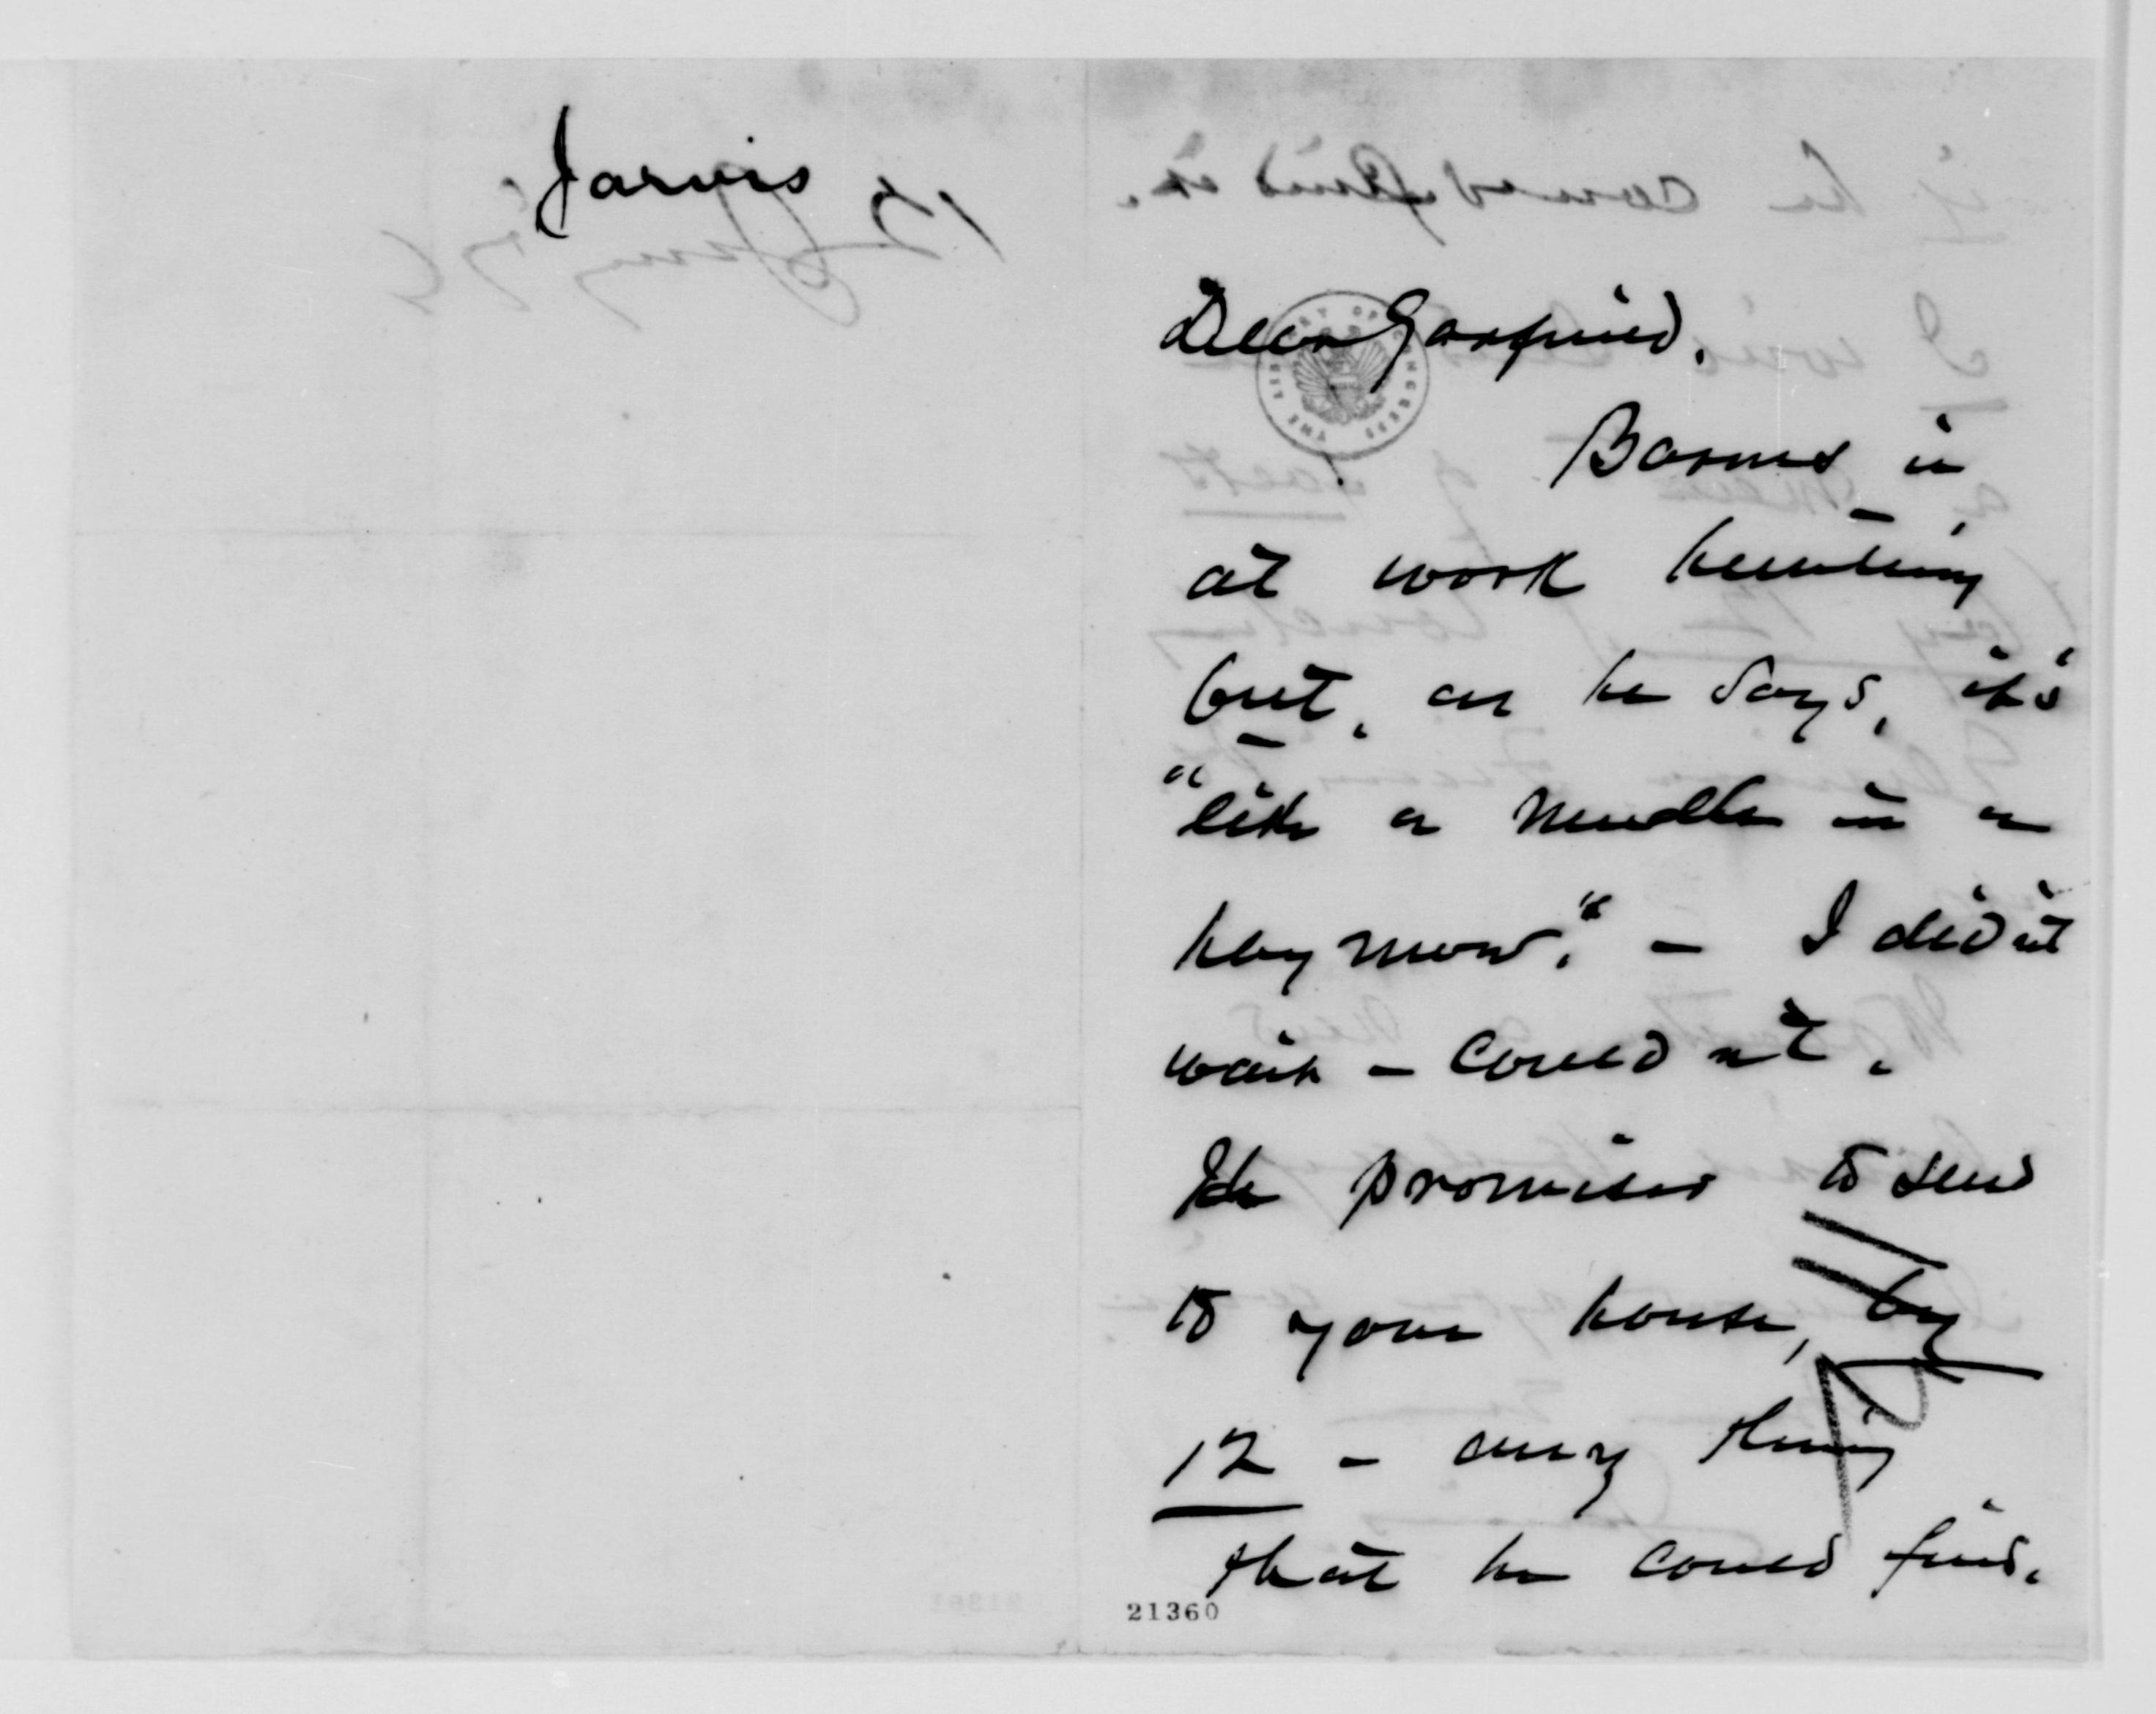 Jarvis
Dear Garfield.
Barnes is
at work hunting
but, as he says, it's
"like a needle in a
hay mow." - I didn't
wait - couldn't.
He promises to send
to your house, by
12 - any thing
that he could find.
THE LIBRARY OF CONGRESS
21360